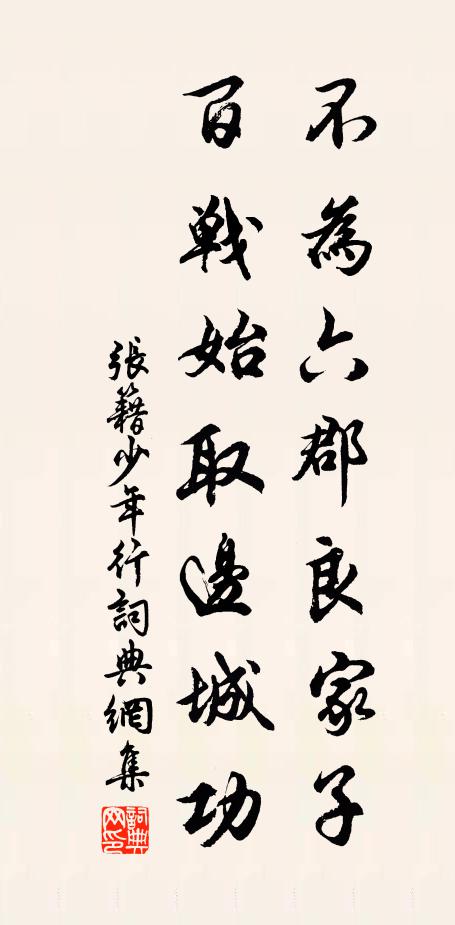 不為六郡良家子
百戰始取邊城功
張籍少年行詞典網集
詞典網印